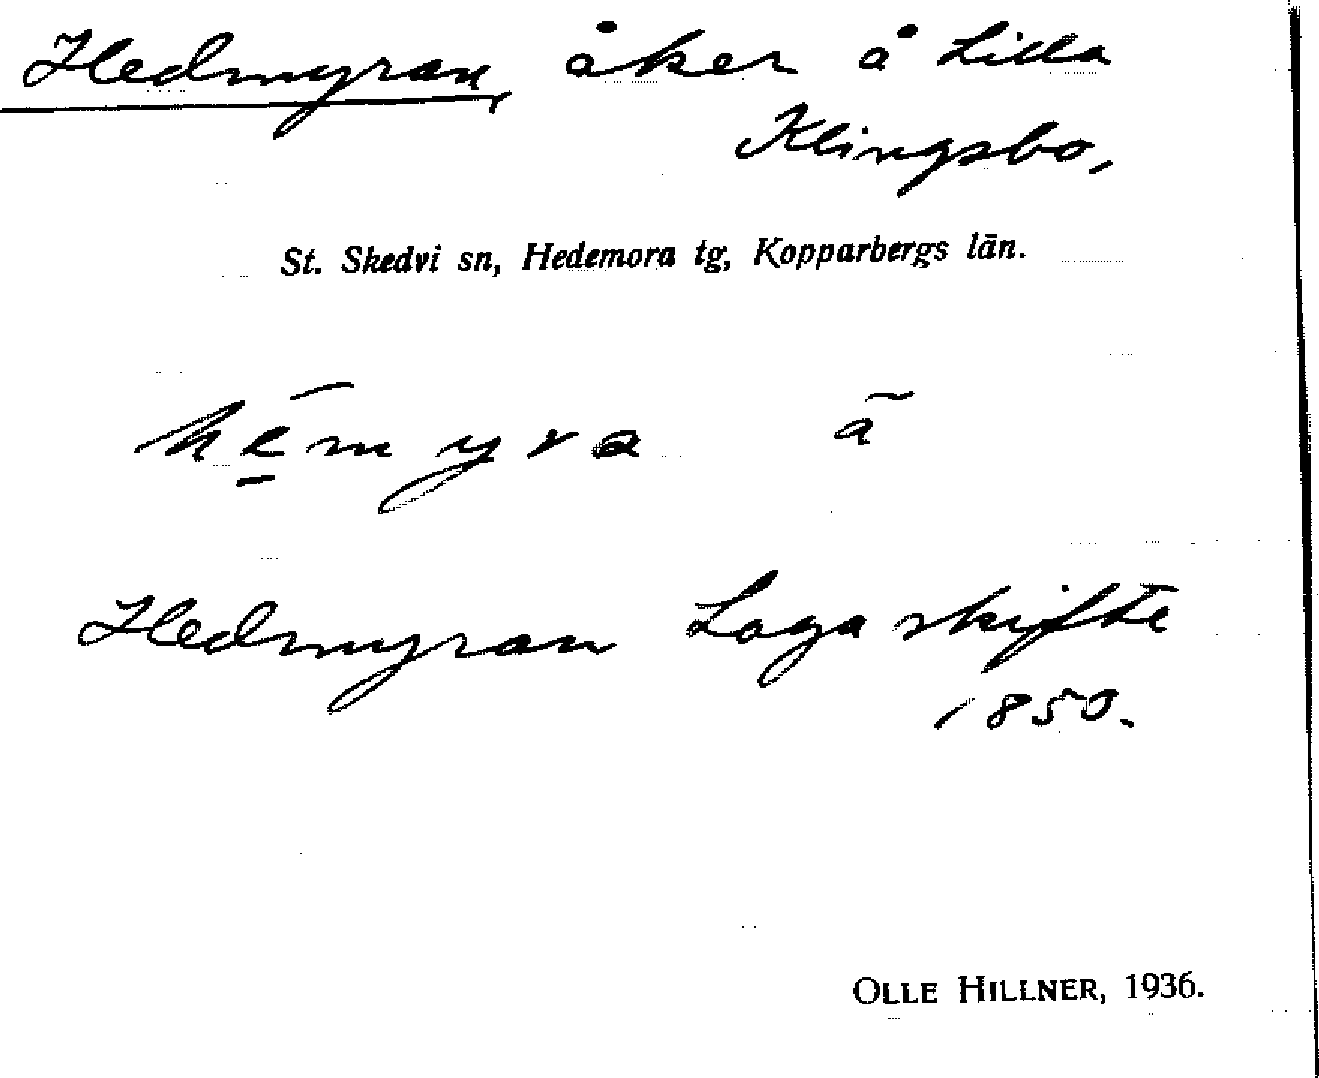 Hedmyran, åker å Lilla
Klingsbo,
St. Skedvi sn, Hedemora tg, Kopparbergs län.
Hedmyran Laga skifte
1850.
OLLE HILLNER, 1936.